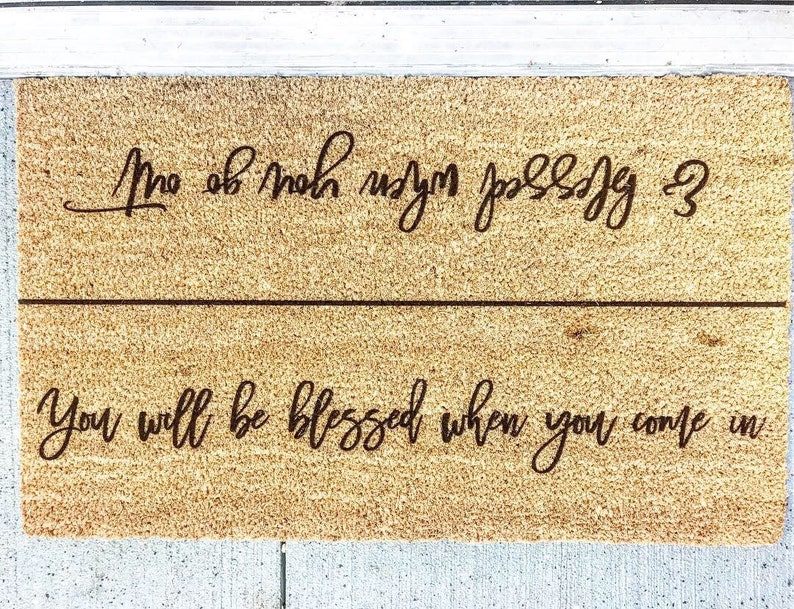 & blessed when you go out
You will be blessed when you come in